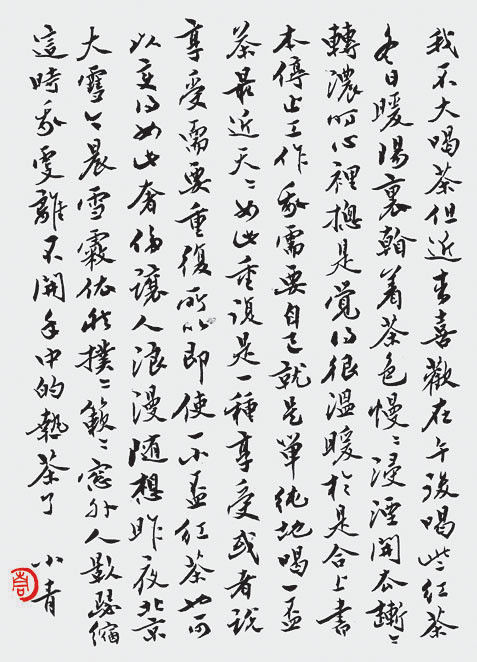 我不大喝茶但近来喜歡在午後喝些紅茶
冬日暖陽裏着茶色慢〻浸湮開漸〻
轉濃心裡揔是覺得很溫暖於是合上書
本停止工作我需要自己就是單純地喝一盃
茶最近天〻如此重複是一種享受或者説
享受需要重復所以即使一小盃紅茶也可
以变得如此奢侈讓人浪漫随想昨夜北京
大雪今晨雪霰依然撲〻簌〻窓外人影瑟縮
這時我更離不開手中的熱茶了
小青